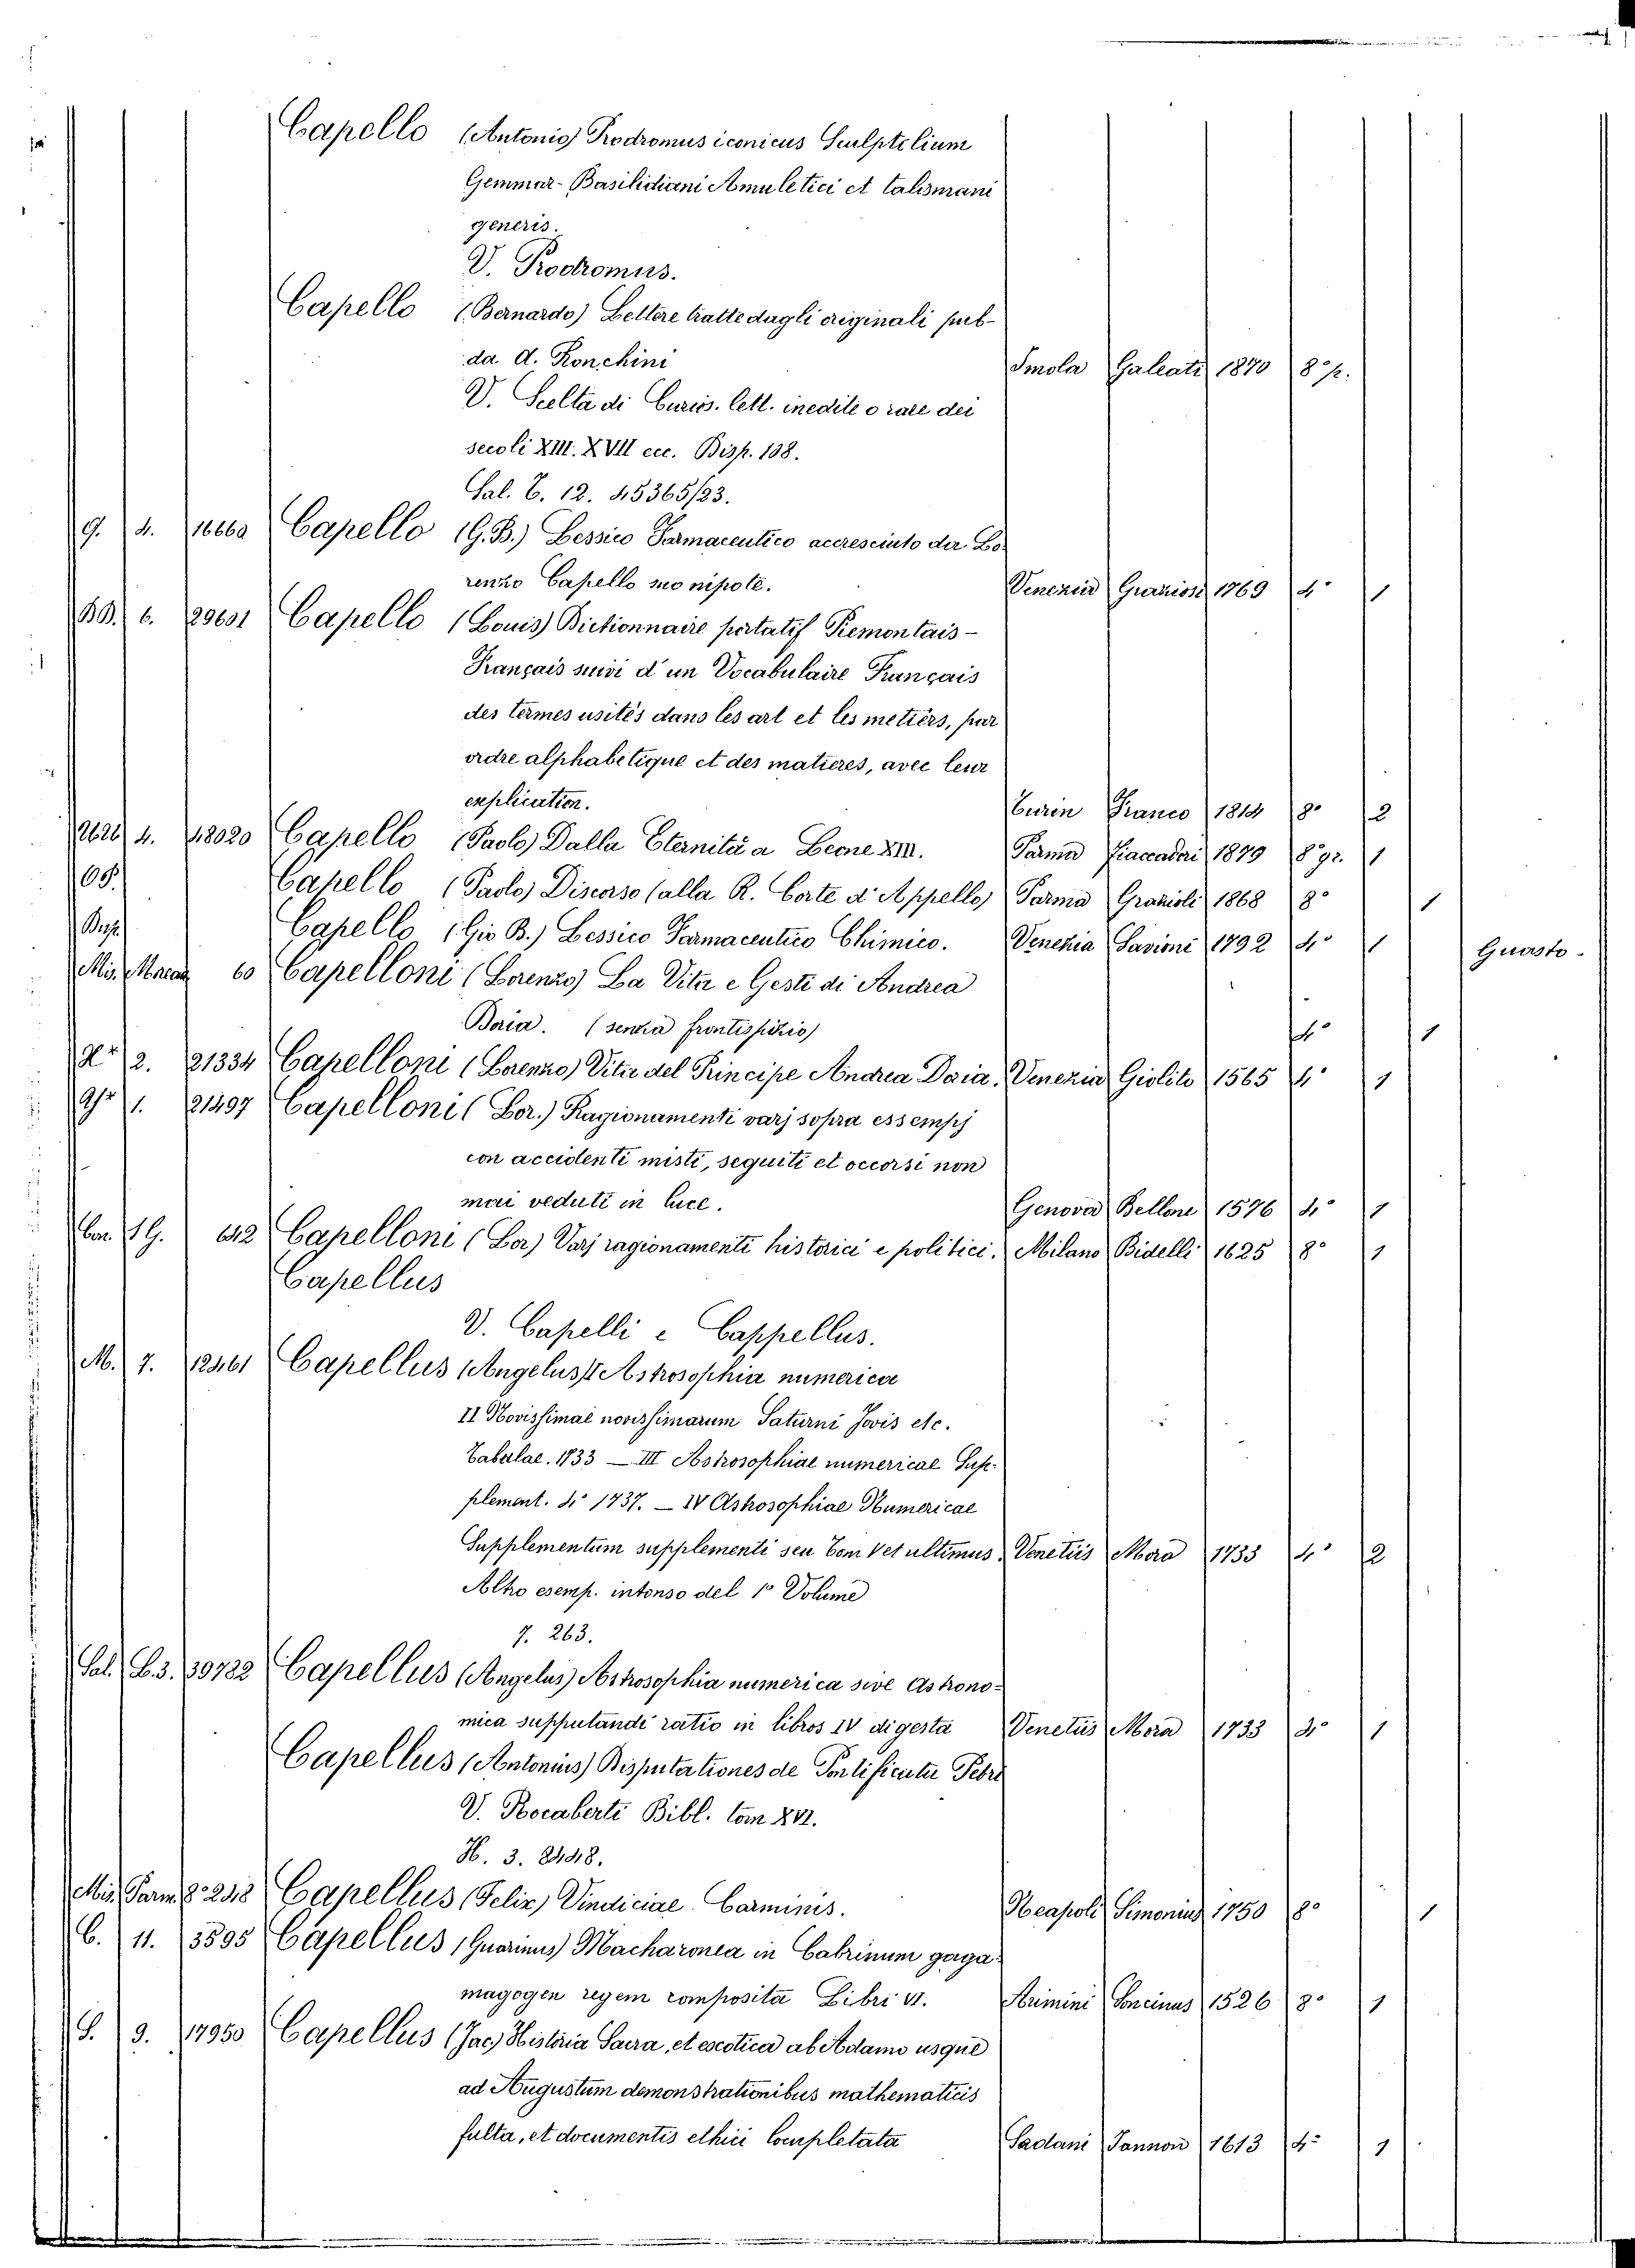 Capello (Antonio) Prodromus iconicus Sculptilium
Gemmar- Basilidiani Amuletici et talismani
generis.
V. Prodromus.
Capello (Bernardo) Lettere tratte dagli originali pub-
da A. Ronchini Imola Galeati 1870 8° p.
V. Scelta di Curios. lett. inedite o rare dei
secoli XIII. XVII ecc. Disp. 108.
Sal. E. 12. 45365/23.
G. 4. 16660 Capello (G.B.) Lessico Farmaceutico accresciuto da Lo-
renzo Capello suo nipote. Venezia Graziosi 1769 4° 1
BB. 6. 29601 Capello (Louis) Dictionnaire portatif Piemontais-
Français suivi d'un Vocabulaire Français
des termes usités dans les art et les metiérs, par
ordre alphabetique et des matieres, avec leur
explication. Turin Franco 1814 8° 2
4. 48020 Capello (Paolo) Dalla Eternità a Leone XIII. Parma Fiaccadori 1879 8° gr. 1
Capello (Paolo) Discorso (alla R. Corte d'Appello) Parma Grazioli 1868 8° 1
Dup. Capello (Gio B.) Lessico Farmaceutico Chimico. Venezia Savioni 1792 4° 1 Guasto.
Mis. 60 Capelloni (Lorenzo) La Vita e Gesti di Andrea
Doria. (senza frontispizio) 4° 1
2. 21334 Capelloni (Lorenzo) Vita del Principe Andrea Doria. Venezia Giolito 1565 4° 1
1. 21497 Capelloni (Lor.) Ragionamenti varj sopra essempj
con accidenti misti, seguiti et occorsi non
mai veduti in luce. Genova Bellone 1576 4° 1
642 Capelloni (Lor) Varj ragionamenti historici e politici. Milano Bidelli 1625 8° 1
Capellus
V. Capelli e Cappellus.
M. 7. 12461 Capellus (Angelus) I Astrosophia numerica
II Novissimae novissimarum Saturni Jovis etc.
Tabulae. 1733 — III Astrosophiae numericae Sup-
plement. 4° 1737. — IV Astrosophiae Numericae
Supplementum supplementi seu Tom V et ultimus. Venetiis Mora 1733 4° 2
Altro esemp. intonso del 1° Volume
7. 263.
Sal. E. 3. 39782 Capellus (Angelus) Astrosophia numerica sive Astrono-
mica supputandi ratio in libros IV digesta Venetiis Mora 1733 4° 1
Capellus (Antonius) Disputationes de Pontificatu Petri
V. Rocaberti Bibl. tom XVI.
H. 3. 8448.
Mis. Parm. 8° 248 Capellus (Felix) Vindiciae Carminis. Neapoli Simonius 1750 8° 1
C. 11. 3595 Capellus (Guarinus) Macharonea in Cabrinum gaga-
magogen regem composita Libri VI. Arimini Soncinus 1526 8° 1
S. 9. 17950 Capellus (Jac) Historia Sacra, et exotica ab Adamo usque
ad Augustum demonstrationibus mathematicis
fulta, et documentis ethici Completata Sadani Jannon 1613 4° 1